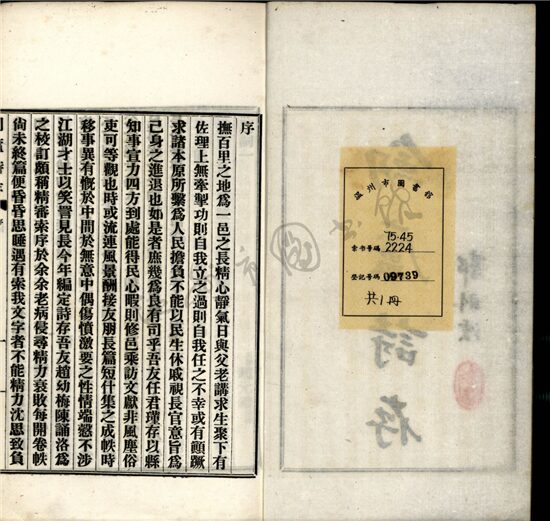 序
撫百里之地爲一邑之長精心靜氣日與父老講求生聚下有
佐理上無牽掣功則自我立之過則自我任之不幸或有顚蹶
求諸本原所繫爲人民擔負不能以民生休戚視長官意旨爲
己身之進退也如是者庶幾爲良有司乎吾友任君瑾存以縣
知事宣力四方到處能得民心暇則修邑乘訪文獻非風塵俗
吏可等觀也時或流連風景酬接友朋長篇短什集之成帙時
移事異有慨於中間於無意中偶傷憤激要之性情端愨不涉
江湖才士以笑詈見長今年編定詩存吾友趙幼梅陳誦洛爲
之校訂頗稱精審索序於余余老病侵尋精力衰敗每開卷帙
尙未終篇便昏昏思睡遇有索我文字者不能精力沈思致負
溫州市圖書館
索書号碼
75.45
2224
登記号碼 09739
共1冊
詩存